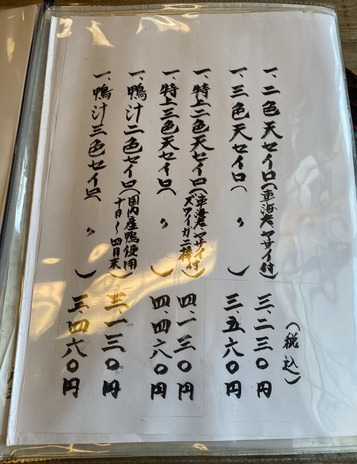 (税込)
一、二色天セイロ(車海老ヤサイ付) 三、二三〇円
一、三色天セイロ(〃) 三、五六〇円
一、特上二色天セイロ(車海老ヤサイ付 ズワイガニ棒付) 四、一三〇円
一、特上三色天セイロ(〃) 四、四六〇円
一、鴨汁二色セイロ(国内産鴨使用 十月〜四月末) 三、一三〇円
一、鴨汁三色セイロ(〃) 三、四六〇円